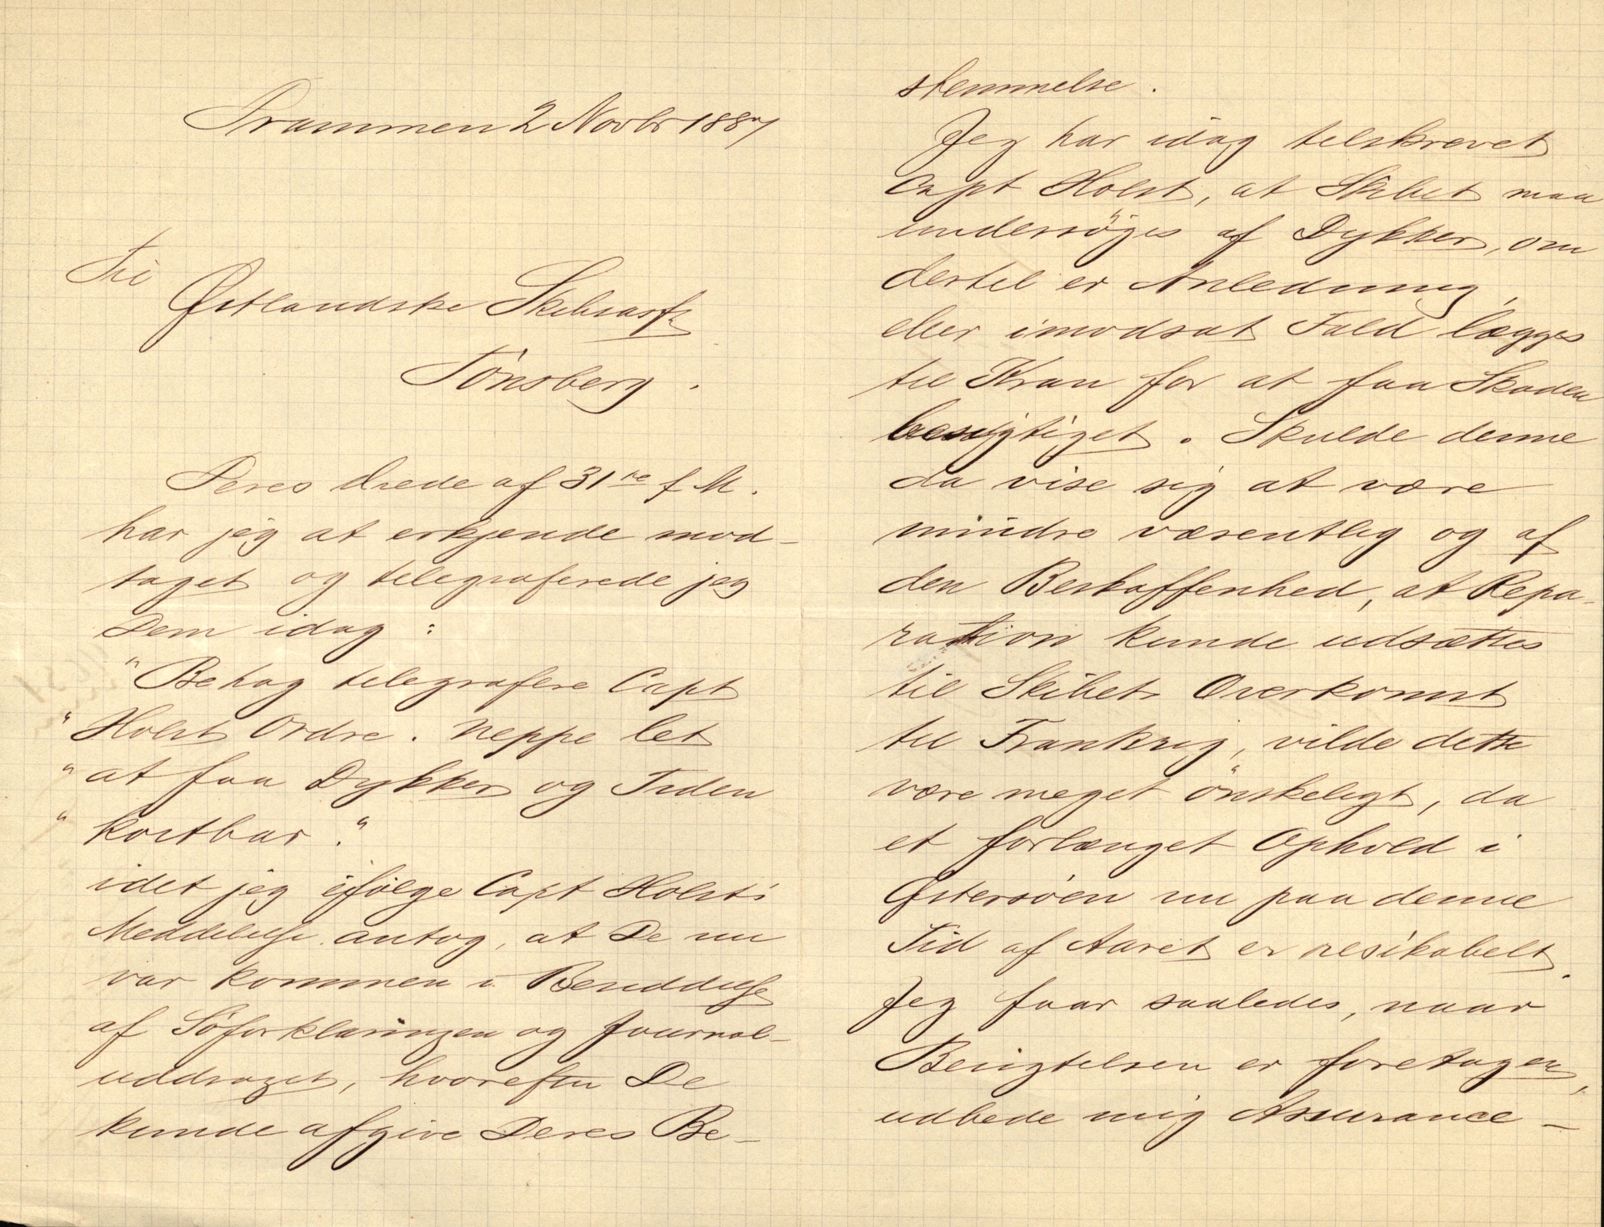 Drammen 2 Novbr 1887
Til
Østlandske Skibsasf.
Tönsberg.
Deres Ærede af 31te f. M.
har jeg at erkjende mod-
taget og telegraferede jeg
Dem idag:
"Behag telegrafere Capt
"Holst Ordre. Neppe let
"at faa Dykker og Tiden
"kostbar."
idet jeg ifölge Capt Holst's
Meddelelse antog, at De nu
var kommen i Besiddelse
af Söforklaringen og Journal-
uddraget, hvorefter De
kunde afgive Deres Be-
stemmelse.
Jeg har idag tilskrevet
Capt Holst, at Skibet maa
undersöges af Dykker, om
dertil er Anledning,
eller imodsat Fald lægges
til Kran for at faa Skaden
besigtiget. Skulde denne
da vise sig at være
mindre væsentlig og af
den Beskaffenhed, at Repa-
ration kunde udsættes
til Skibets Overkomst
til Frankrig, vilde dette
være meget önskeligt, da
et forlænget Ophold i
Østersöen nu paa denne
Tid af Aaret er resikabelt.
Jeg faar saaledes, naar
Besigtelsen er foretagen,
udbede mig Assurance-